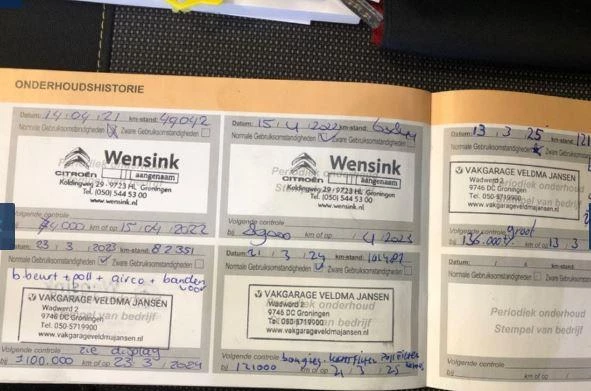 ONDERHOUDSHISTORIE
Datum: 14/04/21 km-stand: 49042
Normale Gebruiksomstandigheden Zware Gebruiksomstandigheden
Wensink
CITROËN aangenaam
Koldingweg 29 - 9723 HL Groningen
Tel. (050) 544 53 00
www.wensink.nl
Volgende controle
bij km of op 15/04/2022
Datum: 15/4/2022 km-stand:
Normale Gebruiksomstandigheden Zware Gebruiksomstandigheden
Periodiek onderhoud
Wensink
CITROËN aangenaam
Koldingweg 29 - 9723 HL Groningen
Tel. (050) 544 53 00
www.wensink.nl
Volgende controle
bij km of op 4/2023
Datum: 23/3/2023 km-stand: 82351
Normale Gebruiksomstandigheden Zware Gebruiksomstandigheden
b beurt + poll + airco + banden voor
VAKGARAGE VELDMA JANSEN
Wadwerd 2
9746 DC Groningen
Tel. 050-5719900
www.vakgarageveldmajansen.nl
Volgende controle zie display
bij 1100.000 km of op 23/3/2024
Datum: 21/3/24 km-stand: 101487
Normale Gebruiksomstandigheden Zware Gebruiksomstandigheden
VAKGARAGE VELDMA JANSEN
Wadwerd 2
9746 DC Groningen
Tel. 050-5719900
www.vakgarageveldmajansen.nl
Volgende controle bougies
bij 121000 km of op 21/3/25
Datum: 13/3/25 km-stand: 121
Normale Gebruiksomstandigheden Zware Gebruiksomstandigheden
VAKGARAGE VELDMA JANSEN
Wadwerd 2
9746 DC Groningen
Tel. 050-5719900
www.vakgarageveldmajansen.nl
Periodiek onderhoud
Stempel van bedrijf
Volgende controle groot
bij 136.000 km of op 13/3
Datum: km-stand:
Normale Gebruiksomstandigheden Zware Gebruiksomstandigheden
Periodiek onderhoud
Stempel van bedrijf
Volgende controle
bij km of op